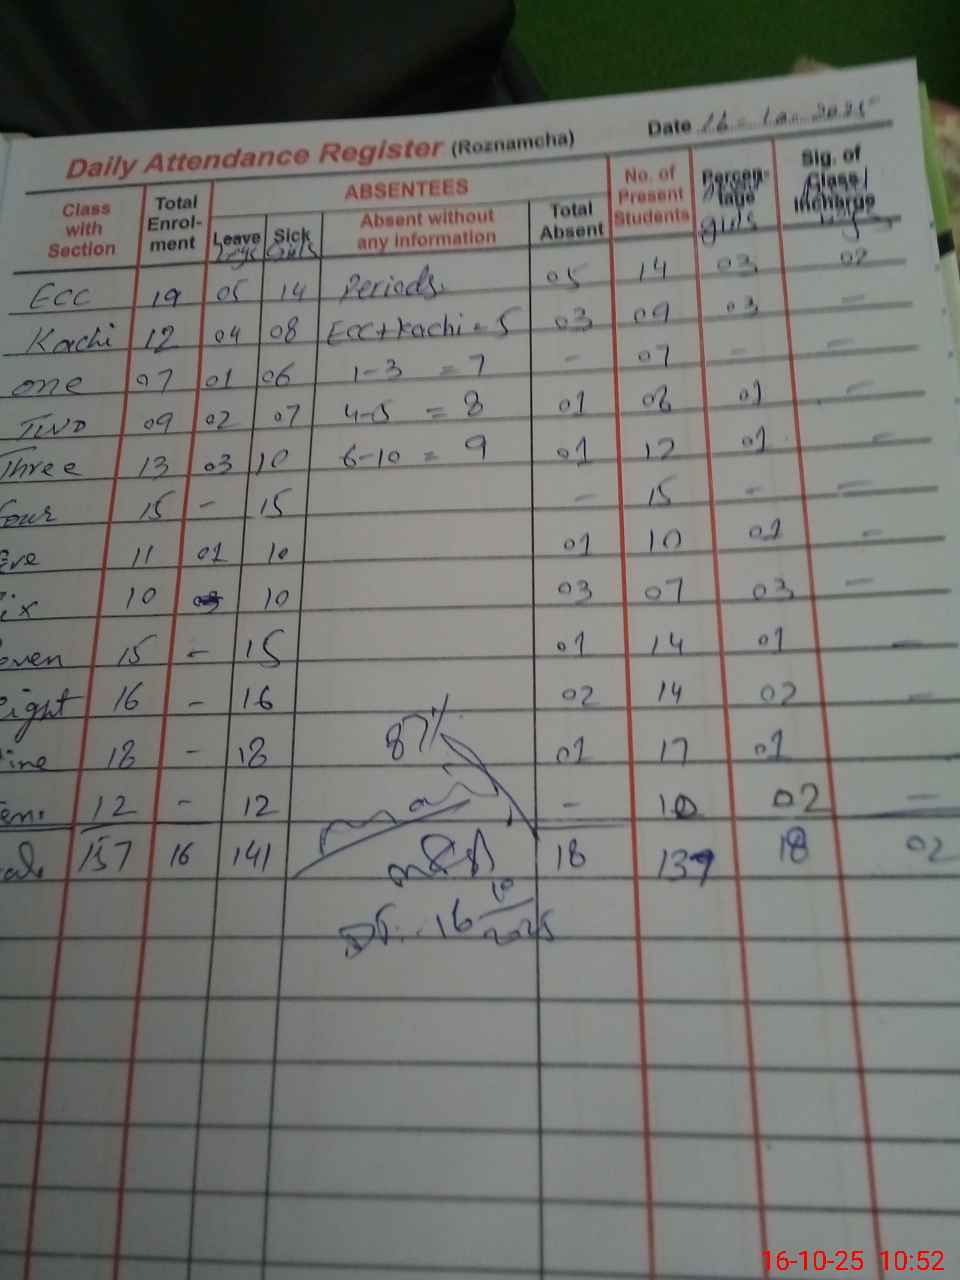 Date 16-10-2025
Daily Attendance Register (Roznamcha)
Class with Section Total Enrol-ment ABSENTEES No. of Present Students Percen-tage Sig. of Class Incharge
Leave Sick Absent without any information Total Absent
Boys Girls girls
ECC 19 05 14 Periods. 05 14 03 02
Kachi 12 04 08 ECC+Kachi = 5 03 09 03 -
One 07 01 06 1-3 = 7 - 07 - -
Two 09 02 07 4-5 = 8 01 08 01 -
Three 13 03 10 6-10 = 9 01 12 01 -
Four 15 - 15 - 15 - -
ive 11 01 10 01 10 01 -
ix 10 10 03 07 03 -
even 15 - 15 01 14 01 -
eight 16 - 16 02 14 02 -
ine 18 - 18 87% 01 17 01
en. 12 - 12 - 10 02 -
al 157 16 141 18 139 18 02
DT:- 16 10 2025
16-10-25 10:52